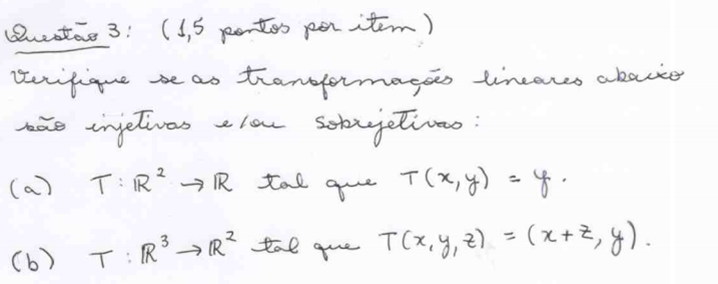 Questão 3: (1,5 pontos por item)
Verifique se as transformações lineares abaixo
são injetivas e/ou sobrejetivas:
(a) T: ℝ² → ℝ tal que T(x,y) = y.
(b) T: ℝ³ → ℝ² tal que T(x,y,z) = (x+z, y).